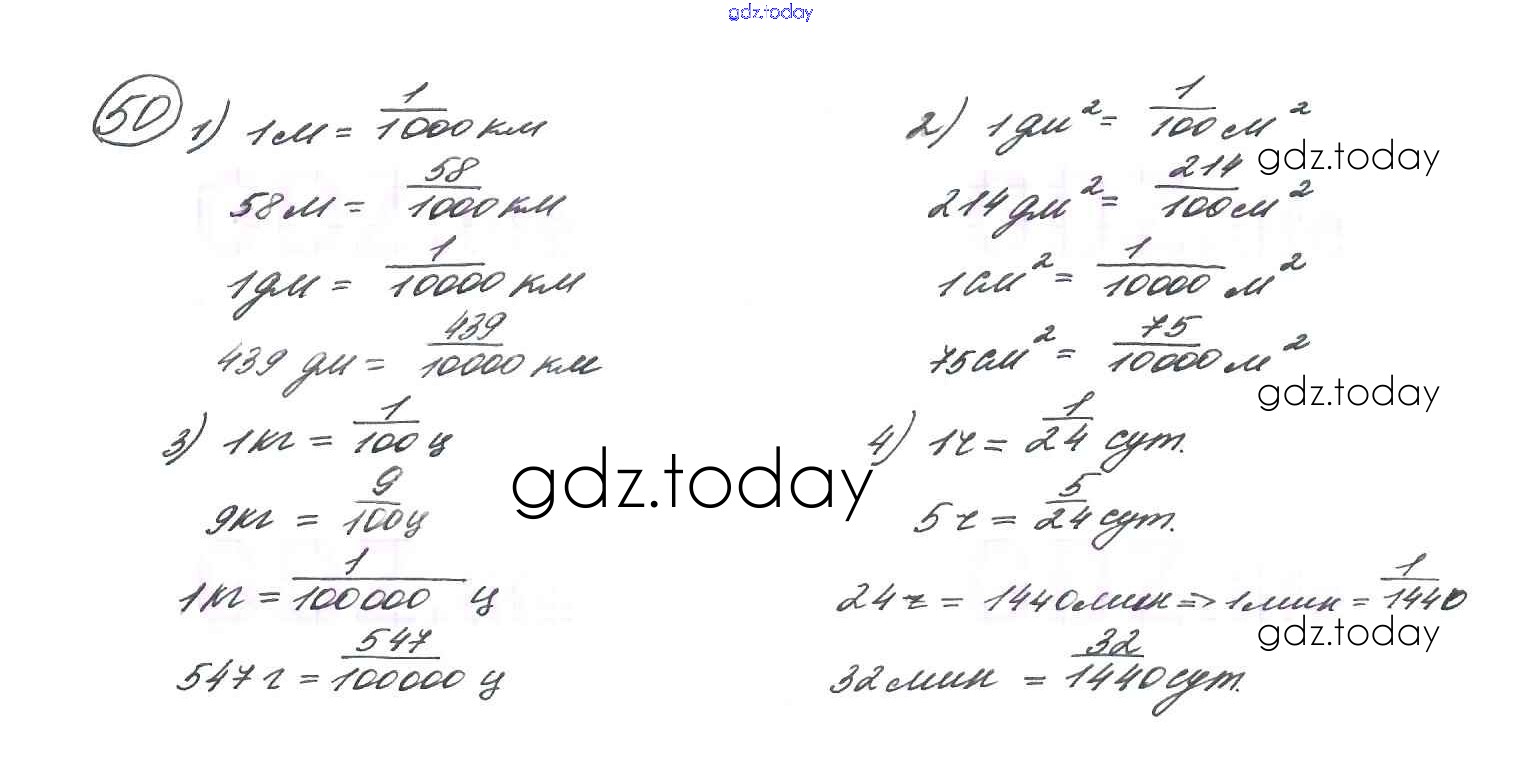 gdz.today
50 1) 1м = 1/1000 км
58м = 58/1000 км
1дм = 1/10000 км
439 дм = 439/10000 км
2) 1дм² = 1/100 м²
gdz.today
214дм² = 214/100 м²
1см² = 1/10000 м²
75см² = 75/10000 м²
gdz.today
3) 1кг = 1/100 ц
9кг = 9/100 ц
1кг = 1/100000 ц
547 г = 547/100000 ц
gdz.today
4) 1ч = 1/24 сут.
5ч = 5/24 сут.
24ч = 1440мин => 1мин = 1/1440
gdz.today
32мин = 32/1440 сут.